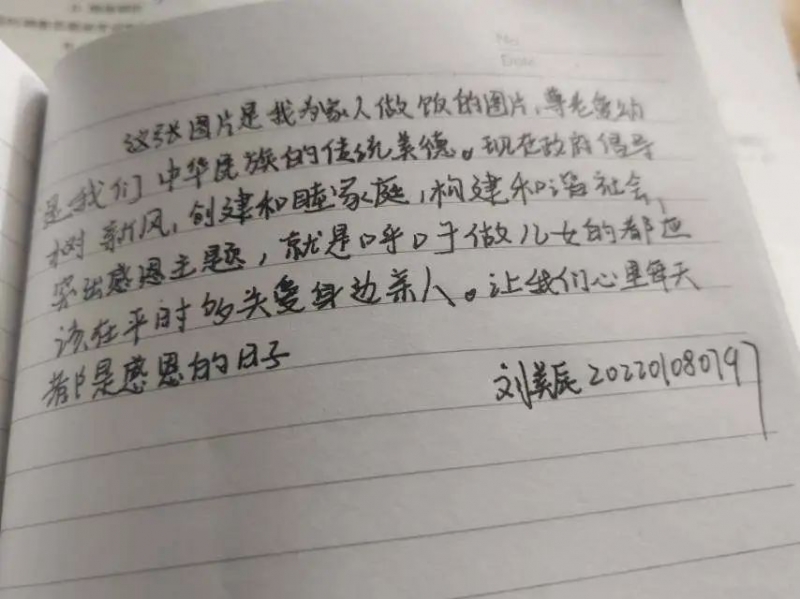 No
Date
这张图片是我为家人做饭的图片,尊老爱幼
是我们中华民族的传统美德。现在政府倡导
树新风,创建和睦家庭,构建和谐社会,
突出感恩主题,就是口呼口于做儿女的都应
该在平时多关爱身边亲人。让我们心里每天
都是感恩的日子
刘美辰 20220108079